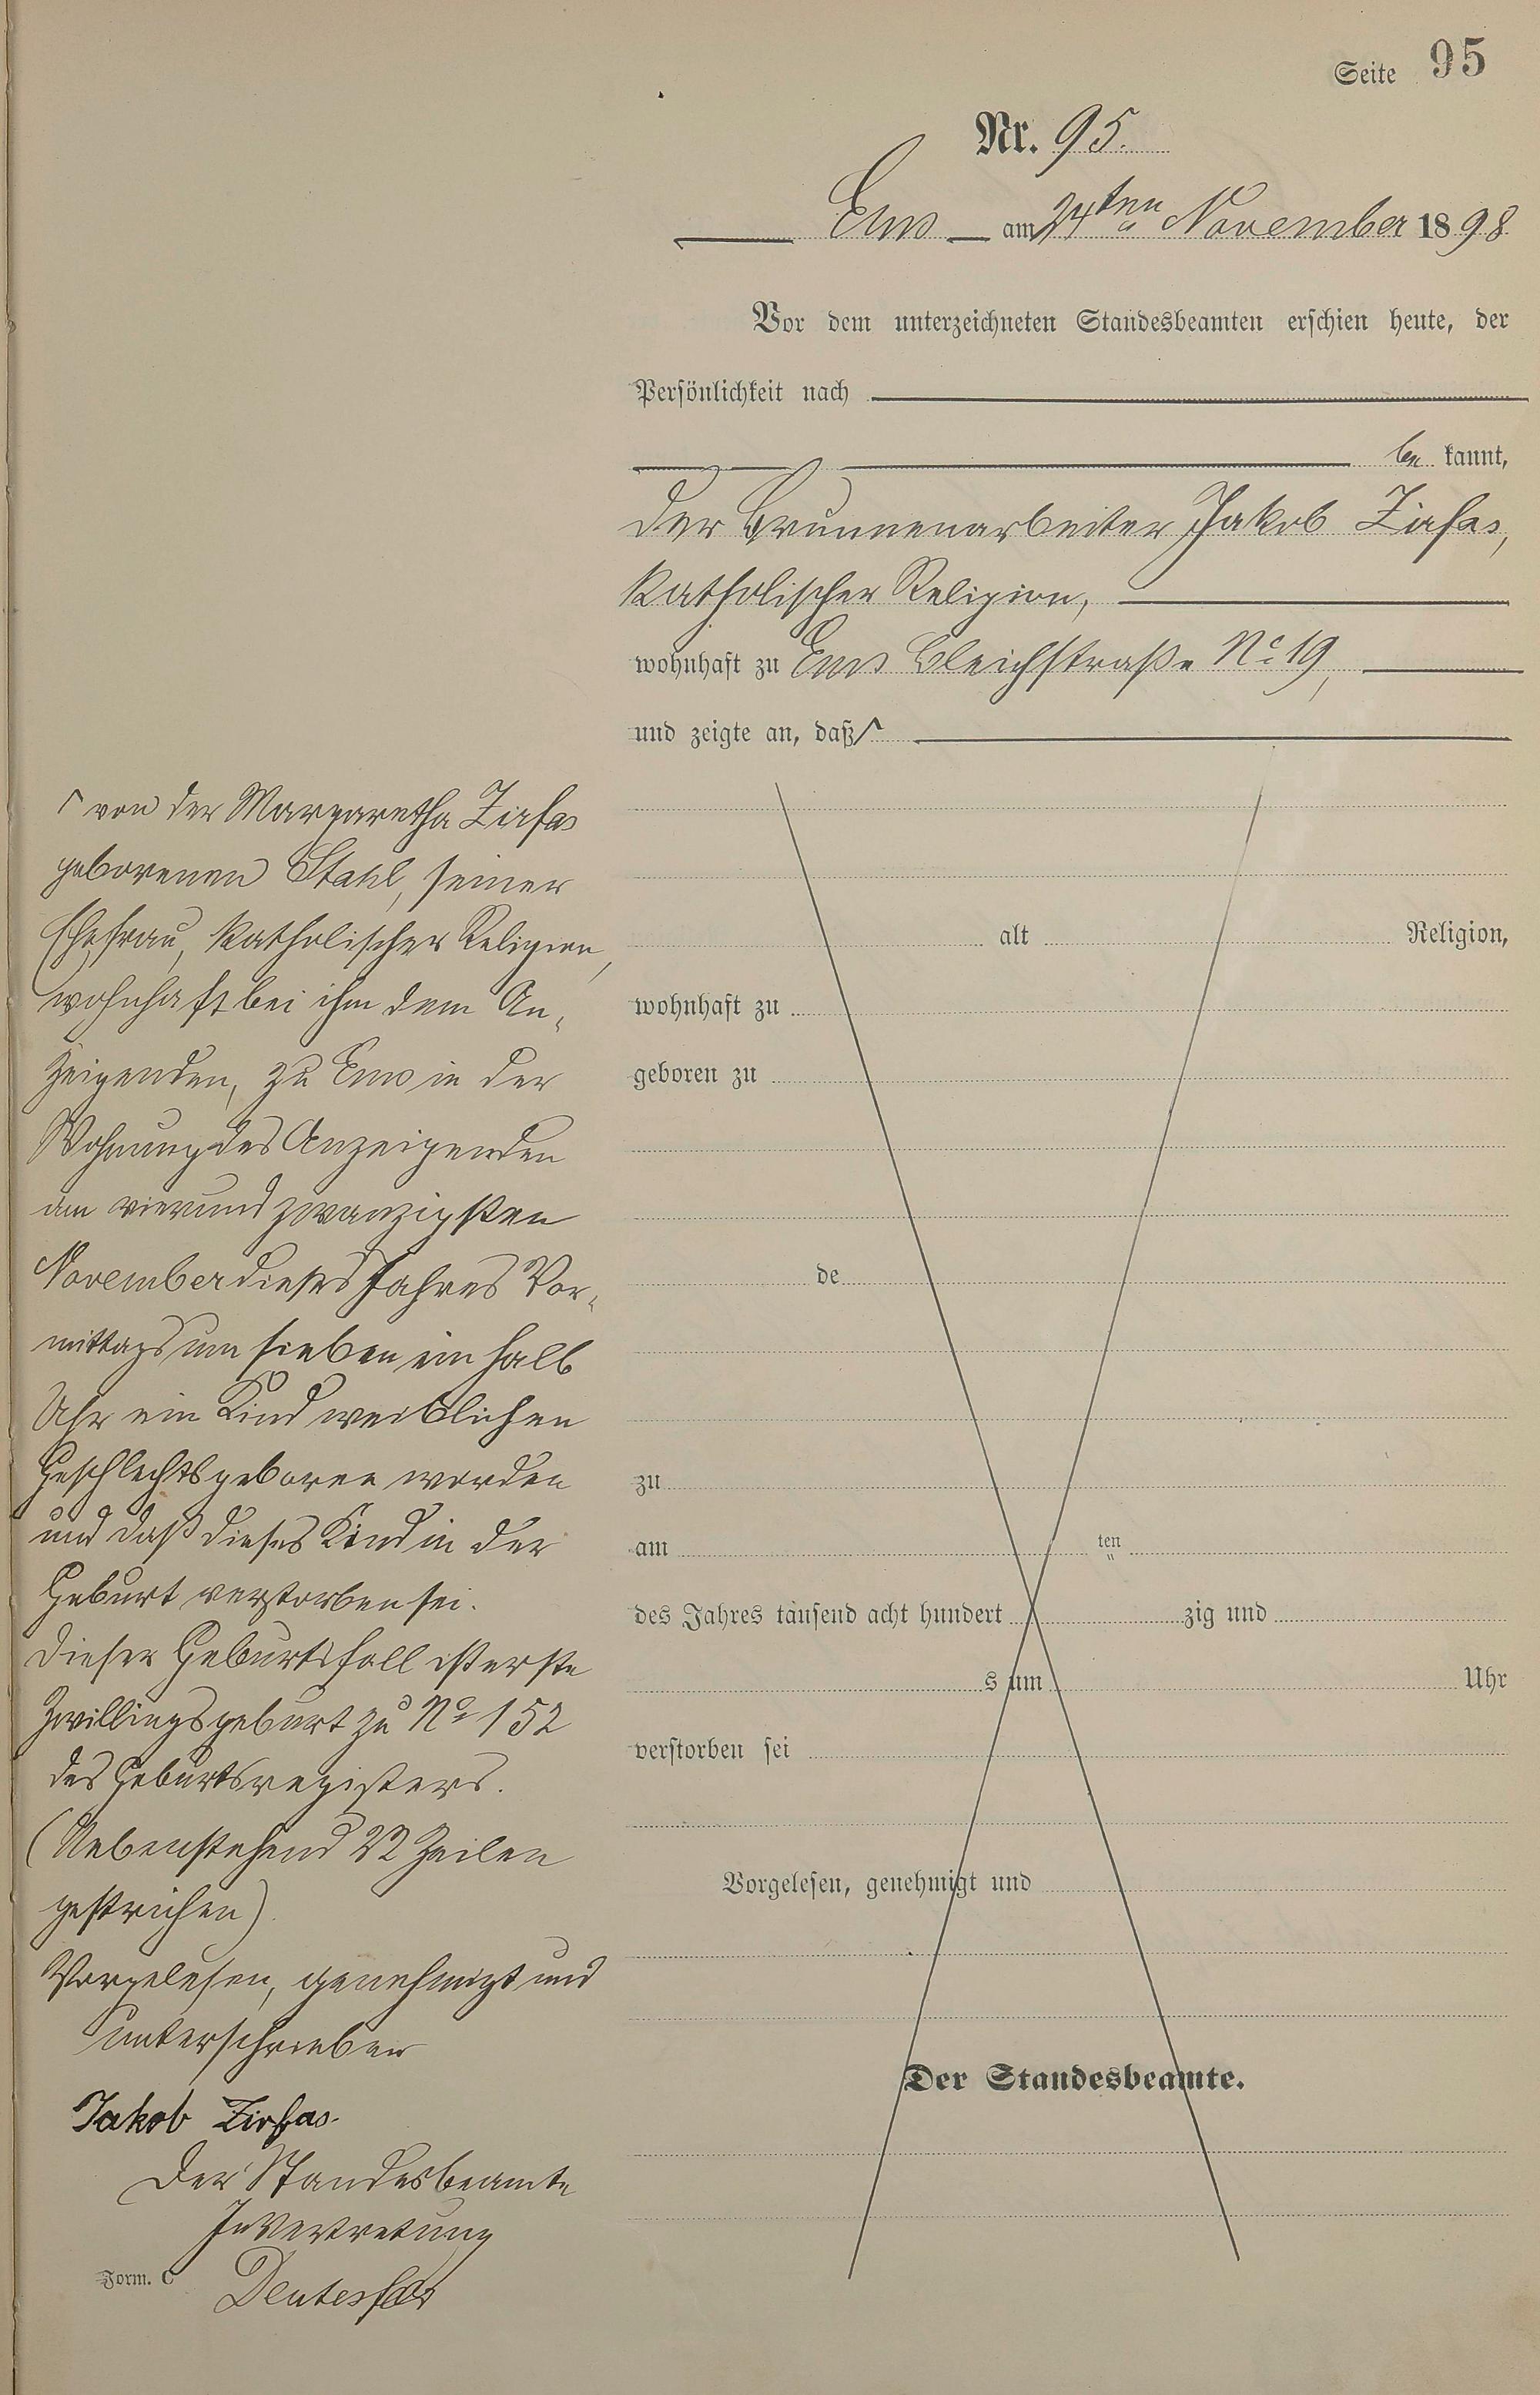 Seite 95
Nr. 95.
Ems am 24ten November 1898
Vor dem unterzeichneten Standesbeamten erschien heute, der
Persönlichkeit nach
be kannt,
der Brunnenarbeiter Jakob Zirfas,
katholischer Religion,
wohnhaft zu Ems Bleichstraße No 19,
und zeigte an, daß ⌈
⌈ von der Margaretha Zirfas
geborenen Stahl, seiner
Ehefrau, katholischer Religion,
wohnhaft bei ihm dem An-
zeigenden, zu Ems in der
Wohnung des Anzeigenden
am vierundzwanzigsten
November dieses Jahres Vor-
mittags um sieben ein halb
Uhr ein Kind weiblichen
Geschlechts geboren worden
und daß dieses Kind in der
Geburt verstorben sei.
Dieser Geburtsfall ist erste
Zwillingsgeburt zu No 152
des Geburtsregisters.
(Nebenstehend 22 Zeilen
gestrichen)
Vorgelesen, genehmigt und
unterschrieben
Jakob Zirfas.
Der Standesbeamte
In Vertretung
Form. C
alt Religion,
wohnhaft zu
geboren zu
de
zu
am ten
des Jahres tausend acht hundert zig und
s um Uhr
verstorben sei
Vorgelesen, genehmigt und
Der Standesbeamte.